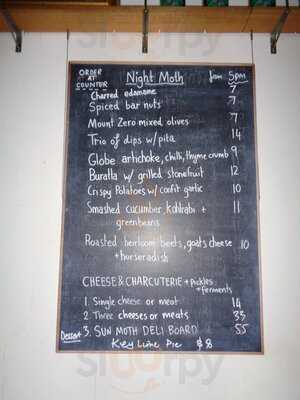 ORDER AT COUNTER
Night Moth from 5pm
Charred edamame 7
Spiced bar nuts 7
Mount Zero mixed olives 7
Trio of dips w/ pita 14
Globe artichoke, chilli, thyme crumb 9
Buratta w/ grilled stonefruit 12
Crispy Potatoes w/ confit garlic 10
Smashed cucumber, kohlrabi + 11
greenbeans
Roasted heirloom beets, goats cheese 10
+ horseradish
CHEESE & CHARCUTERIE + Pickles
+ ferments
1. Single cheese or meat 14
2. Three cheeses or meats 33
3. SUN MOTH DELI BOARD 55
Dessert Key Lime Pie $8
Sluurpy
Sluurpy